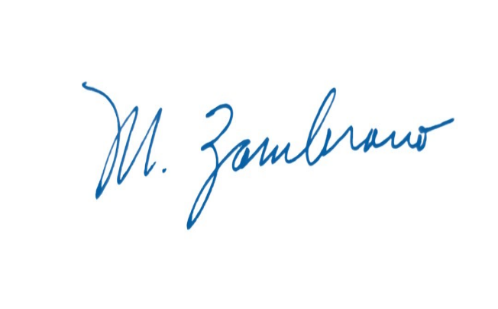 M. Zambrano